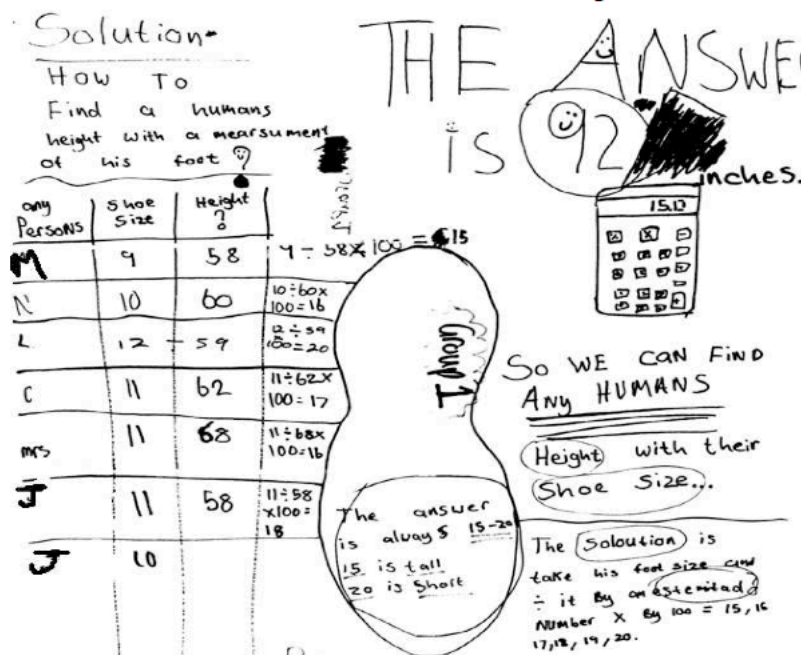 Solution-
HOW TO
Find a humans
height with a mearsument
of his foot ?
THE ANSWE
is 92
inches.
15.0
any Persons
Shoe Size
Height ?
M 9 58 9 ÷ 58 x 100 = 15
N 10 60 10÷60x
100=16
L 12 - 59 12 ÷ 59
100=20
C 11 62 11÷62x
100=17
mrs 11 68 11÷68x
100=16
J 11 58 11÷58
x100=
18
J 10
Group 1
The answer
is always 15-20
15 is tall
20 is Short
SO WE CAN FIND
Any HUMANS
Height with their
Shoe Size...
The Soloution is
take his foot size and
÷ it By an estemitad
Number x By 100 = 15, 16
17, 18, 19, 20.